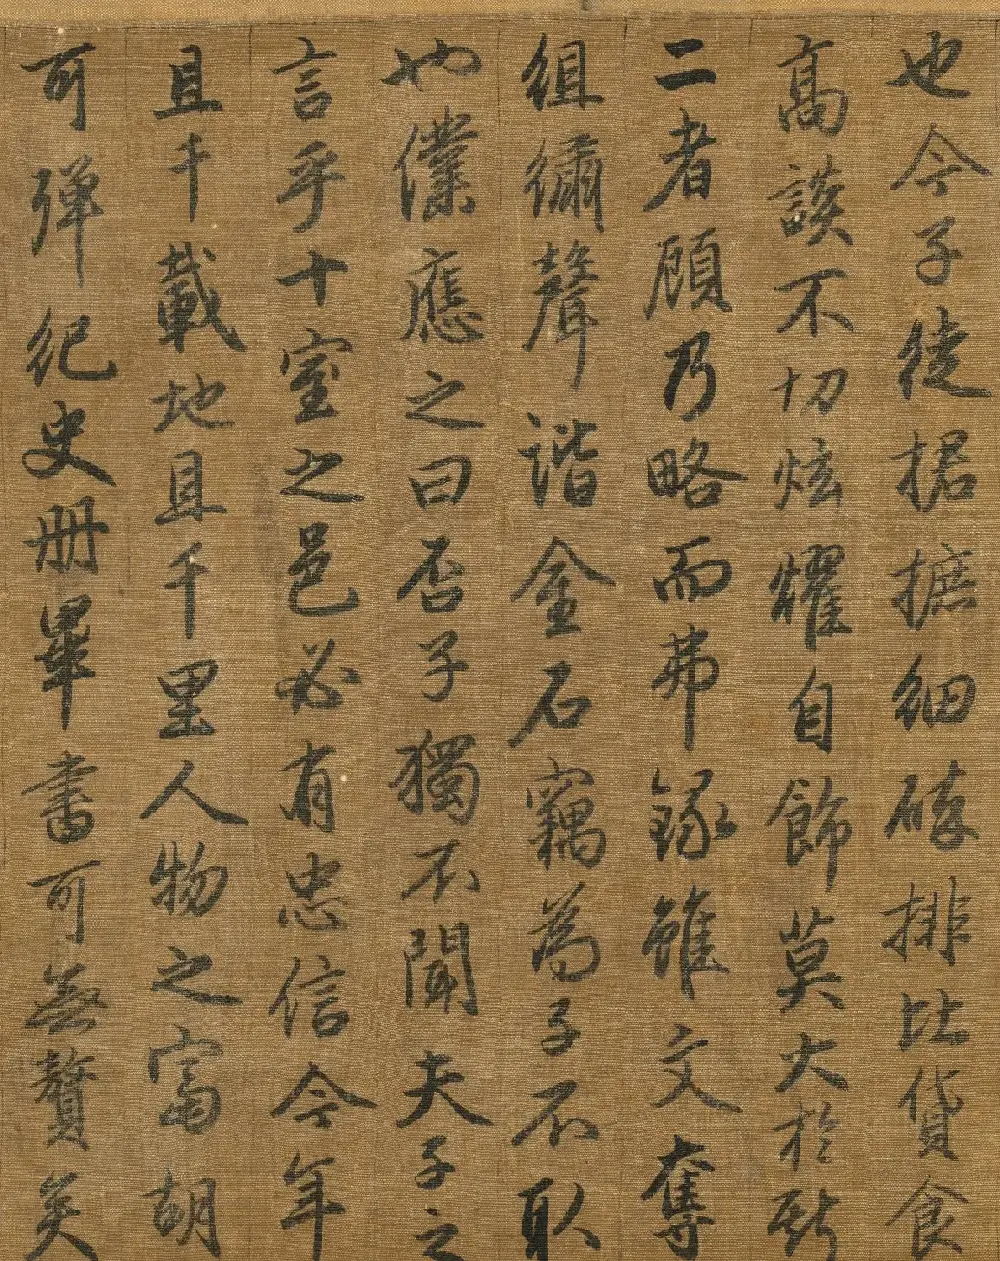 也今子徒捃摭細碎排比貨食
高談不切炫燿自飾莫大於斯
二者顧乃略而弗録雖文奪
組繡聲諧金石竊為子不取
也僕應之曰否子獨不聞夫子之
言乎十室之邑必有忠信今年
且千載地且千里人物之富胡
可彈紀史冊畢書可無贅矣